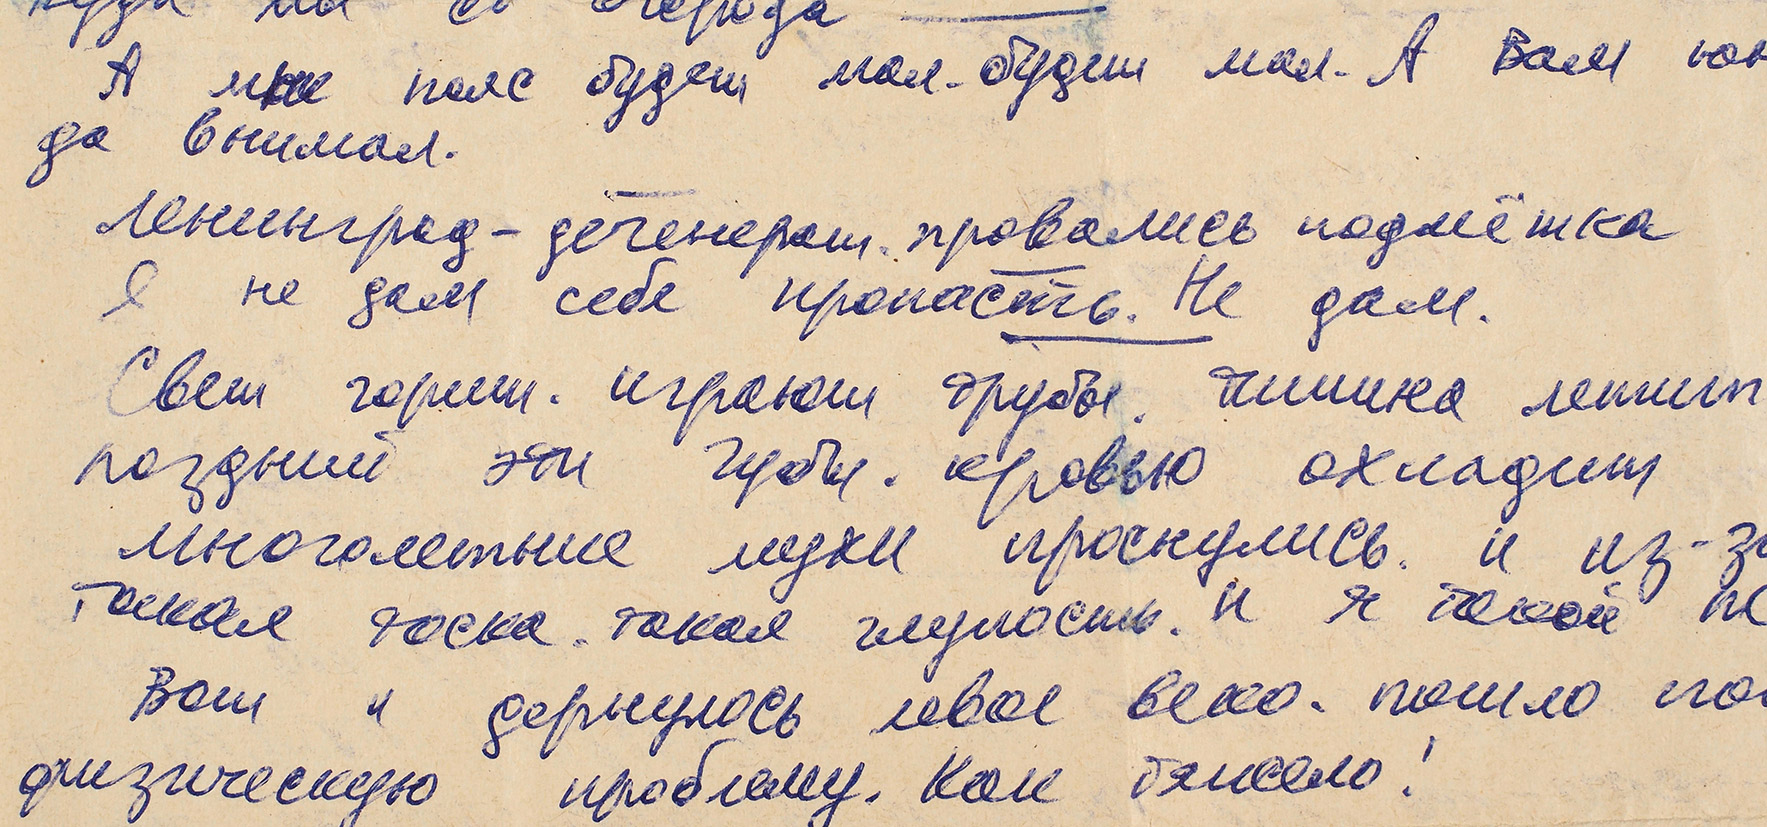 куда мы со
А мне пояс будет мал. будет мал. А Вам
да внимал.
Ленинград - дегенерат. провались подмётка
Я не дам себе пропасть. Не дам.
Свет горит. играют трубы. тишина летит
поздний эти губы. кровью охладит
многолетние мухи проснулись. и из-за
такая тоска. такая глупость. и я такой
Вот и дернулось левое веко. пошло
физическую проблему. Как тяжело!